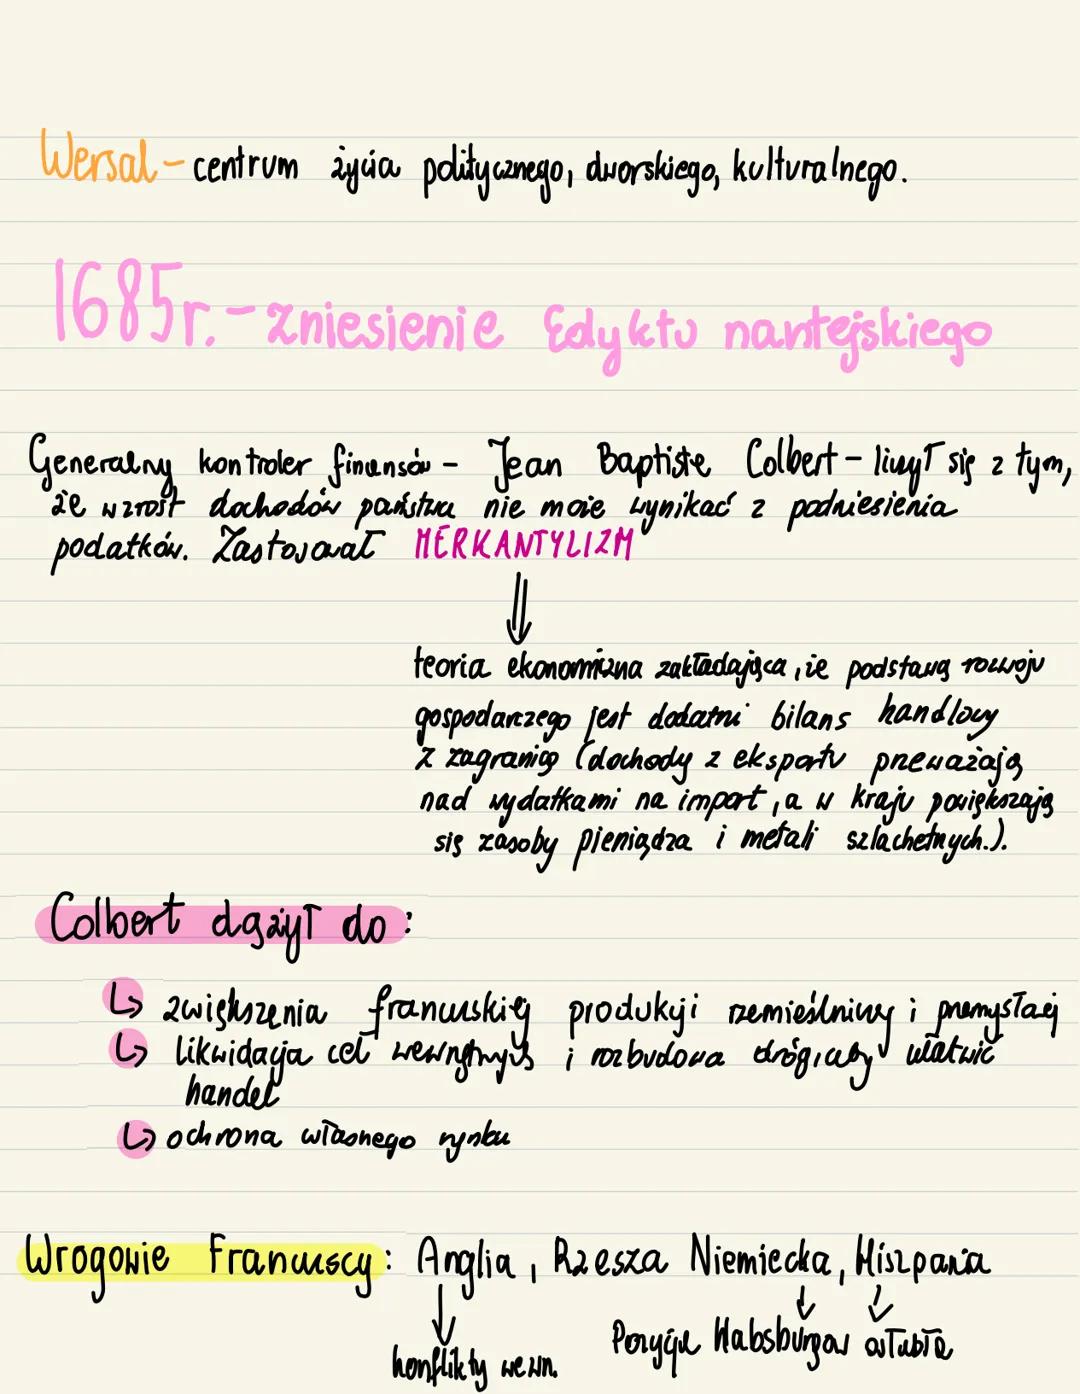 Wersal - centrum życia politycznego, dworskiego, kulturalnego.
1685r. - zniesienie Edyktu nantejskiego
Generalny kontroler finansów - Jean Baptiste Colbert - liczył się z tym,
że wzrost dochodów państwa nie może wynikać z podniesienia
podatków. Zastosował MERKANTYLIZM
⇓
teoria ekonomiczna zakładająca, że podstawą rozwoju
gospodarczego jest dodatni bilans handlowy
z zagranicą (dochody z eksportu przeważają
nad wydatkami na import, a w kraju powiększają
się zasoby pieniądza i metali szlachetnych.).
Colbert dążył do:
↳ zwiększenia francuskiej produkcji rzemieślniczej i przemysłowej
↳ likwidacja ceł wewnętrznych i rozbudowa dróg, aby ułatwić
handel
↳ ochrona własnego rynku
Wrogowie Francuscy: Anglia, Rzesza Niemiecka, Hiszpania
↓ ↓ ↓
konflikty wewn. Pozycje Habsburgów osłabła